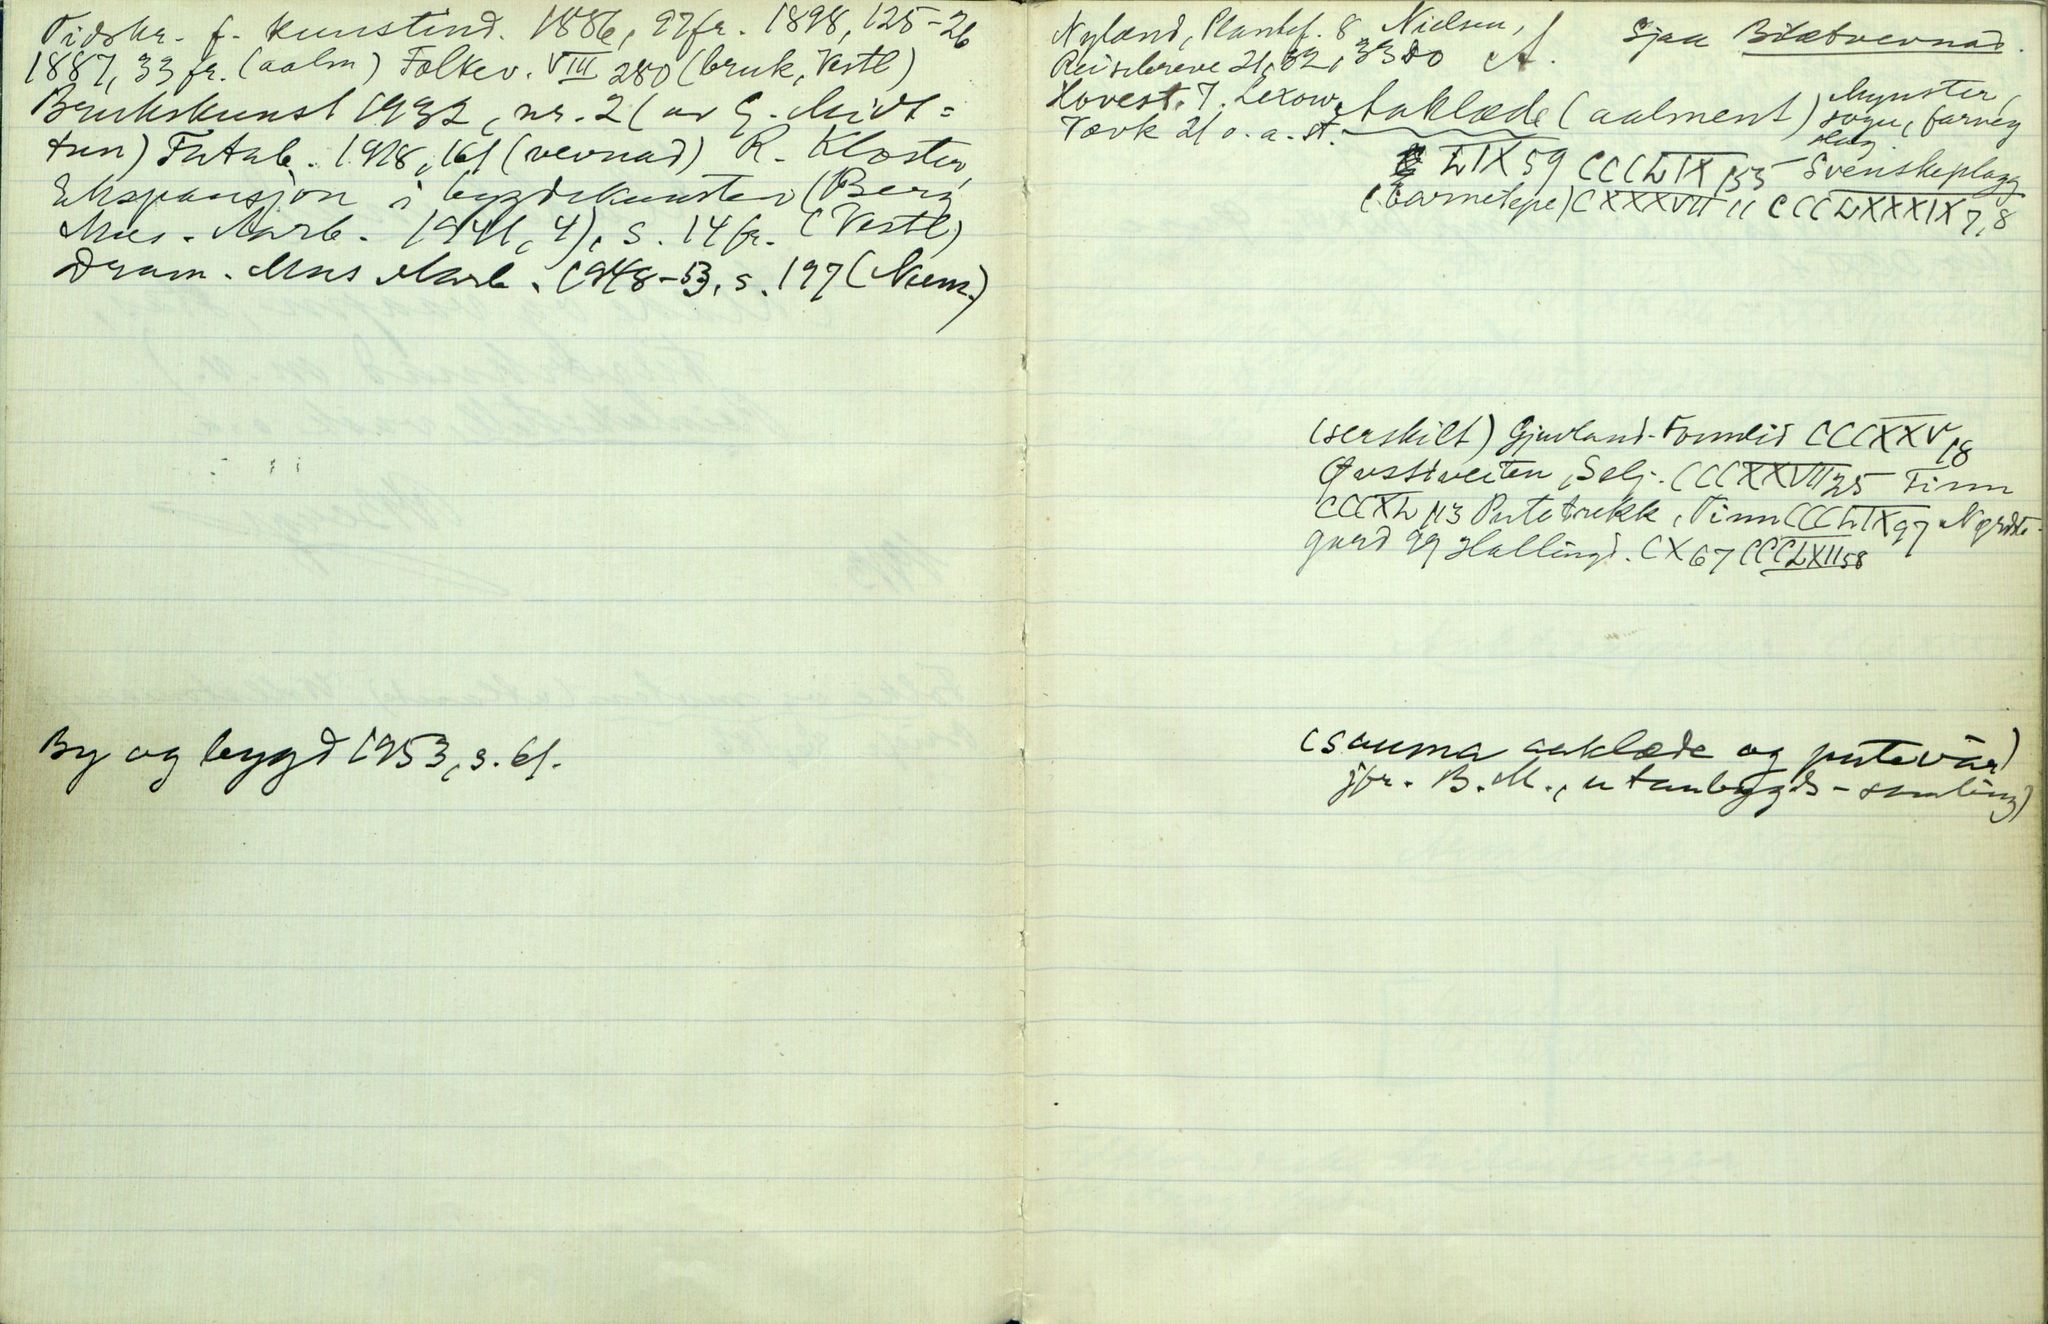 Tidskr. f. Kunstind. 1886, 97 fr. 1898, 125-26
1887, 33 fr. (aalm) Folkev. VIII 280 (bruk, Vestl)
Brukskunst 1932, nr. 2 (av G. Midt=
tun) Fatab. 1928, 161 (vevnad) R. Kloster,
Ekspansjon i bygdekunsten (Berg.
Mus. Aarb. 1941, 4), s. 14 fr. (Vestl)
Dram. Mus Aarb. 1948-53, s. 197 (Num.)
By og bygd 1953, s. 61.
Nyland, Plantef. 8 Nielsen,
Reisebreve 21, 32, 33 80 A. Sjaa Biletvevnad.
Hovest. 7. Lexow,
Vævk 21 o. a. st. Aaklæde (aalment) Mynster,
sogu, farveg
LIX 59 CCCLIX 153 Svenskeplagg
(Barnetepe) CXXXVII 11 CCCLXXXIX 7, 8
(serskilt) Gjuvland-Fonnlid CCCXXV 18
Øvstveiten, Selj. CCCXXVII 25 Tinn
CCCXL 113 Putetrekk, Tinn CCCLIX 97 Nordte-
gard 99 Hallingd. CX 67 CCCLXII 58
(sauma aaklæde og putevar)
jfr. B. M., utanbygds-samling)